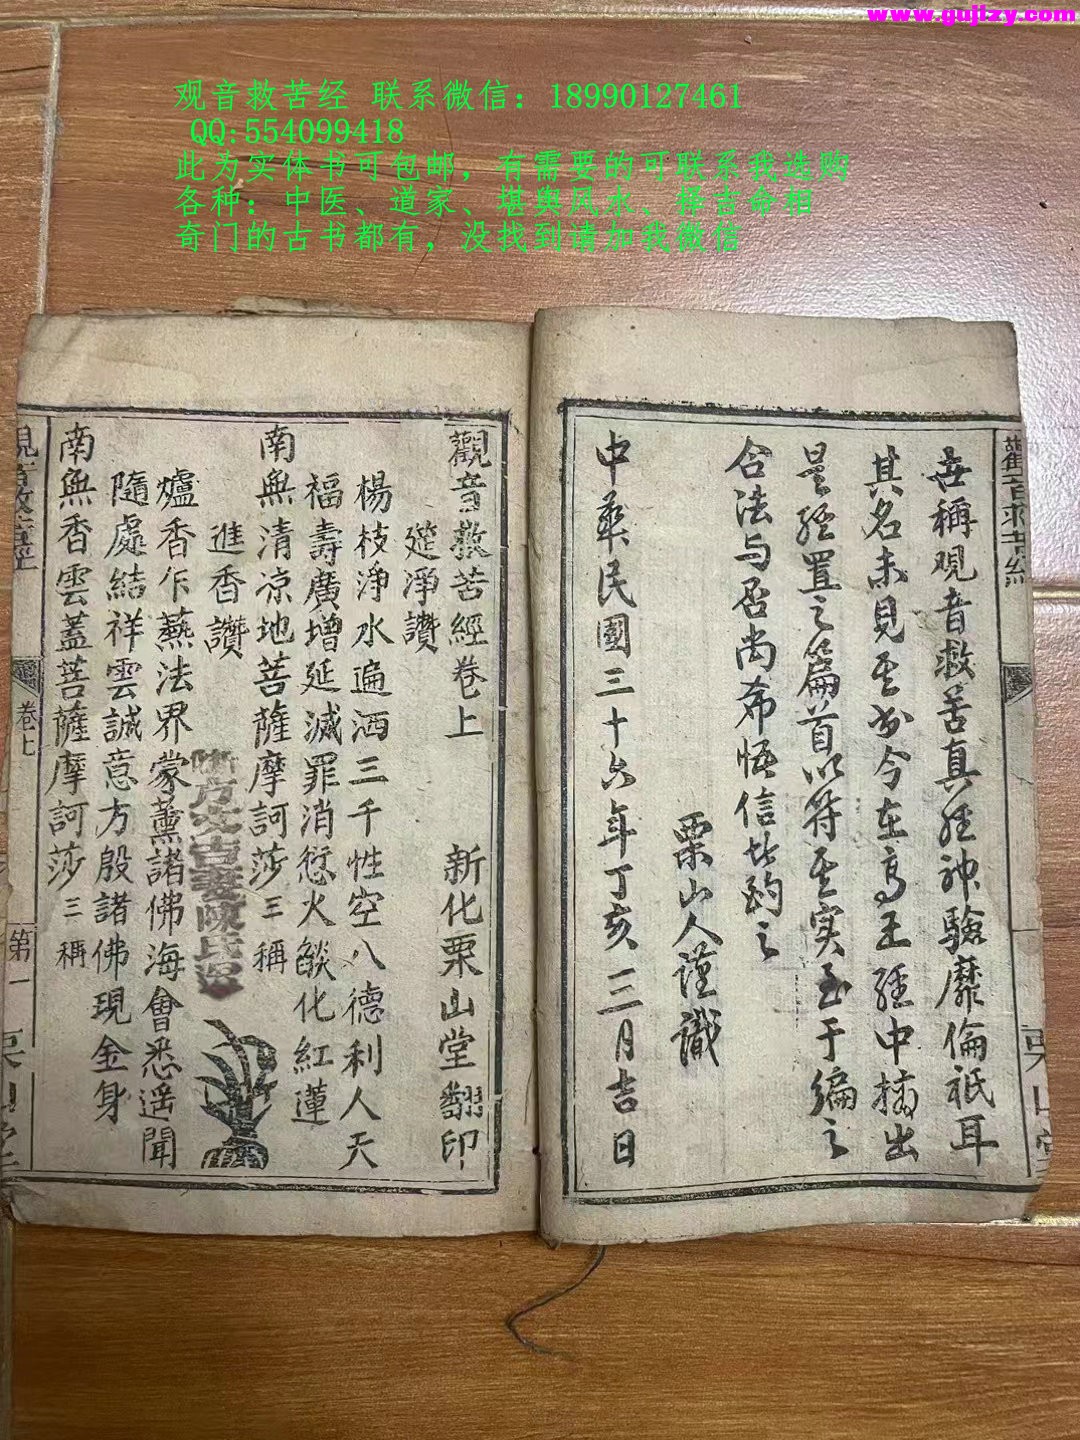 www.gujizy.com
观音救苦经 联系微信：18990127461
QQ:554099418
此为实体书可包邮，有需要的可联系我选购
各种：中医、道家、堪舆风水、择吉命相
奇门的古书都有，没找到请加我微信
世稱观音救苦真经神驗靡倫祇耳
其名未見其書今在高王經中摘出
是经置之篇首以符其实至于編之
合法与否尚希悟信者酌之
栗山人謹識
中華民國三十六年丁亥三月吉日
觀音救苦經卷上 新化栗山堂翻印
淨讚
楊枝淨水遍洒三千性空八德利人天
福壽廣增延滅罪消愆火燄化紅蓮
南無清凉地菩薩摩訶莎三稱
進香讚
爐香乍爇法界蒙薰諸佛海會悉遥聞
隨處結祥雲誠意方殷諸佛現金身
南無香雲蓋菩薩摩訶莎三稱
卷上
第一